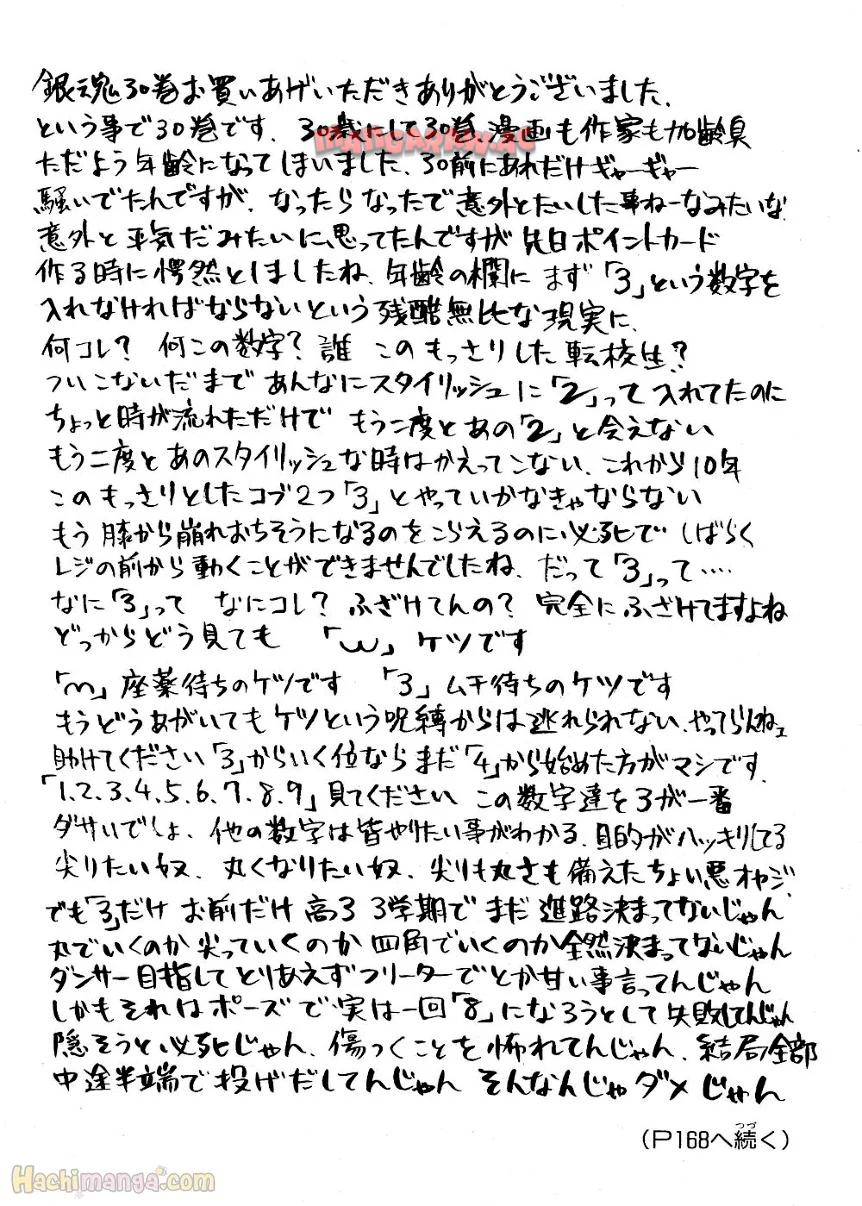 銀魂30巻お買いあげいただきありがとうございました。
という事で30巻です。30歳にして30巻、漫画も作家も加齢臭
ただよう年齢になってしまいました。30前にあれだけギャーギャー
騒いでたんですが、なったらなったで意外とたいした事ねーなみたいな
意外と平気だみたいに思ってたんですが先日ポイントカード
作る時に愕然としましたね、年齢の欄にまず「3」という数字を
入れなければならないという残酷無比な現実に、
何コレ? 何この数字? 誰 このもっさりした転校生?
ついこないだまであんなにスタイリッシュに「2」って入れてたのに
ちょっと時が流れただけで もう二度とあの「2」と会えない
もう二度とあのスタイリッシュな時はかえってこない、これから10年
このもっさりとしたコブ2つ「3」とやっていかなきゃならない
もう膝から崩れおちそうになるのをこらえるのに必死で しばらく
レジの前から動くことができませんでしたね、だって「3」って‥‥
なに「3」って なにコレ? ふざけてんの? 完全にふざけてますよね
どっからどう見ても 「ω」ケツです
「m」座薬待ちのケツです 「3」ムチ待ちのケツです
もうどうあがいてもケツという呪縛からは逃れられない、やってらんねェ
助けてください「3」からいく位ならまだ「4」から始めた方がマシです。
「1.2.3.4.5.6.7.8.9」見てください この数字達を3が一番
ダサいでしょ、他の数字は皆やりたい事がわかる、目的がハッキリしてる
尖りたい奴、丸くなりたい奴、尖りも丸さも備えたちょい悪オヤジ、
でも「3」だけ お前だけ 高3 3学期で まだ進路決まってないじゃん
丸でいくのか尖っていくのか四角でいくのか全然決まってないじゃん
ダンサー目指してとりあえずフリーターでとか甘い事言ってんじゃん
しかもそれはポーズで実は一回「8」になろうとして失敗してんじゃん
隠そうと必死じゃん、傷つくことを怖れてんじゃん、結局全部
中途半端で投げだしてんじゃん そんなんじゃダメじゃん
(P168へ続く)
Hachimanga
Hachimanga.com